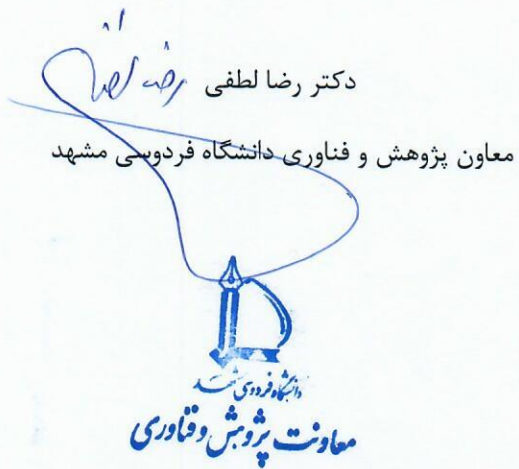 دکتر رضا لطفی
معاون پژوهش و فناوری دانشگاه فردوسی مشهد
دانشگاه فردوسی مشهد
معاونت پژوهش و فناوری